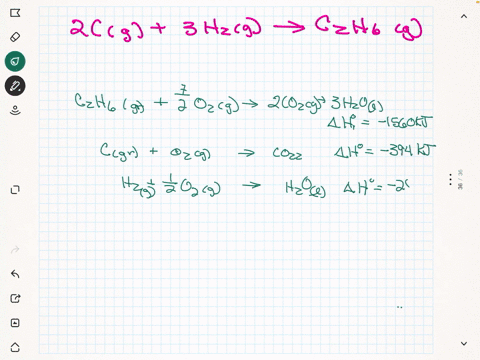 2C(g) + 3H2(g) → C2H6 (g)
C2H6 (g) + 7/2 O2(g) → 2CO2(g) + 3H2O(l)
ΔH° = -1560kJ
C(gr) + O2(g) → CO22 ΔH° = -394 kJ
H2(g) + 1/2 O2(g) → H2O(l) ΔH° = -2
36 / 36